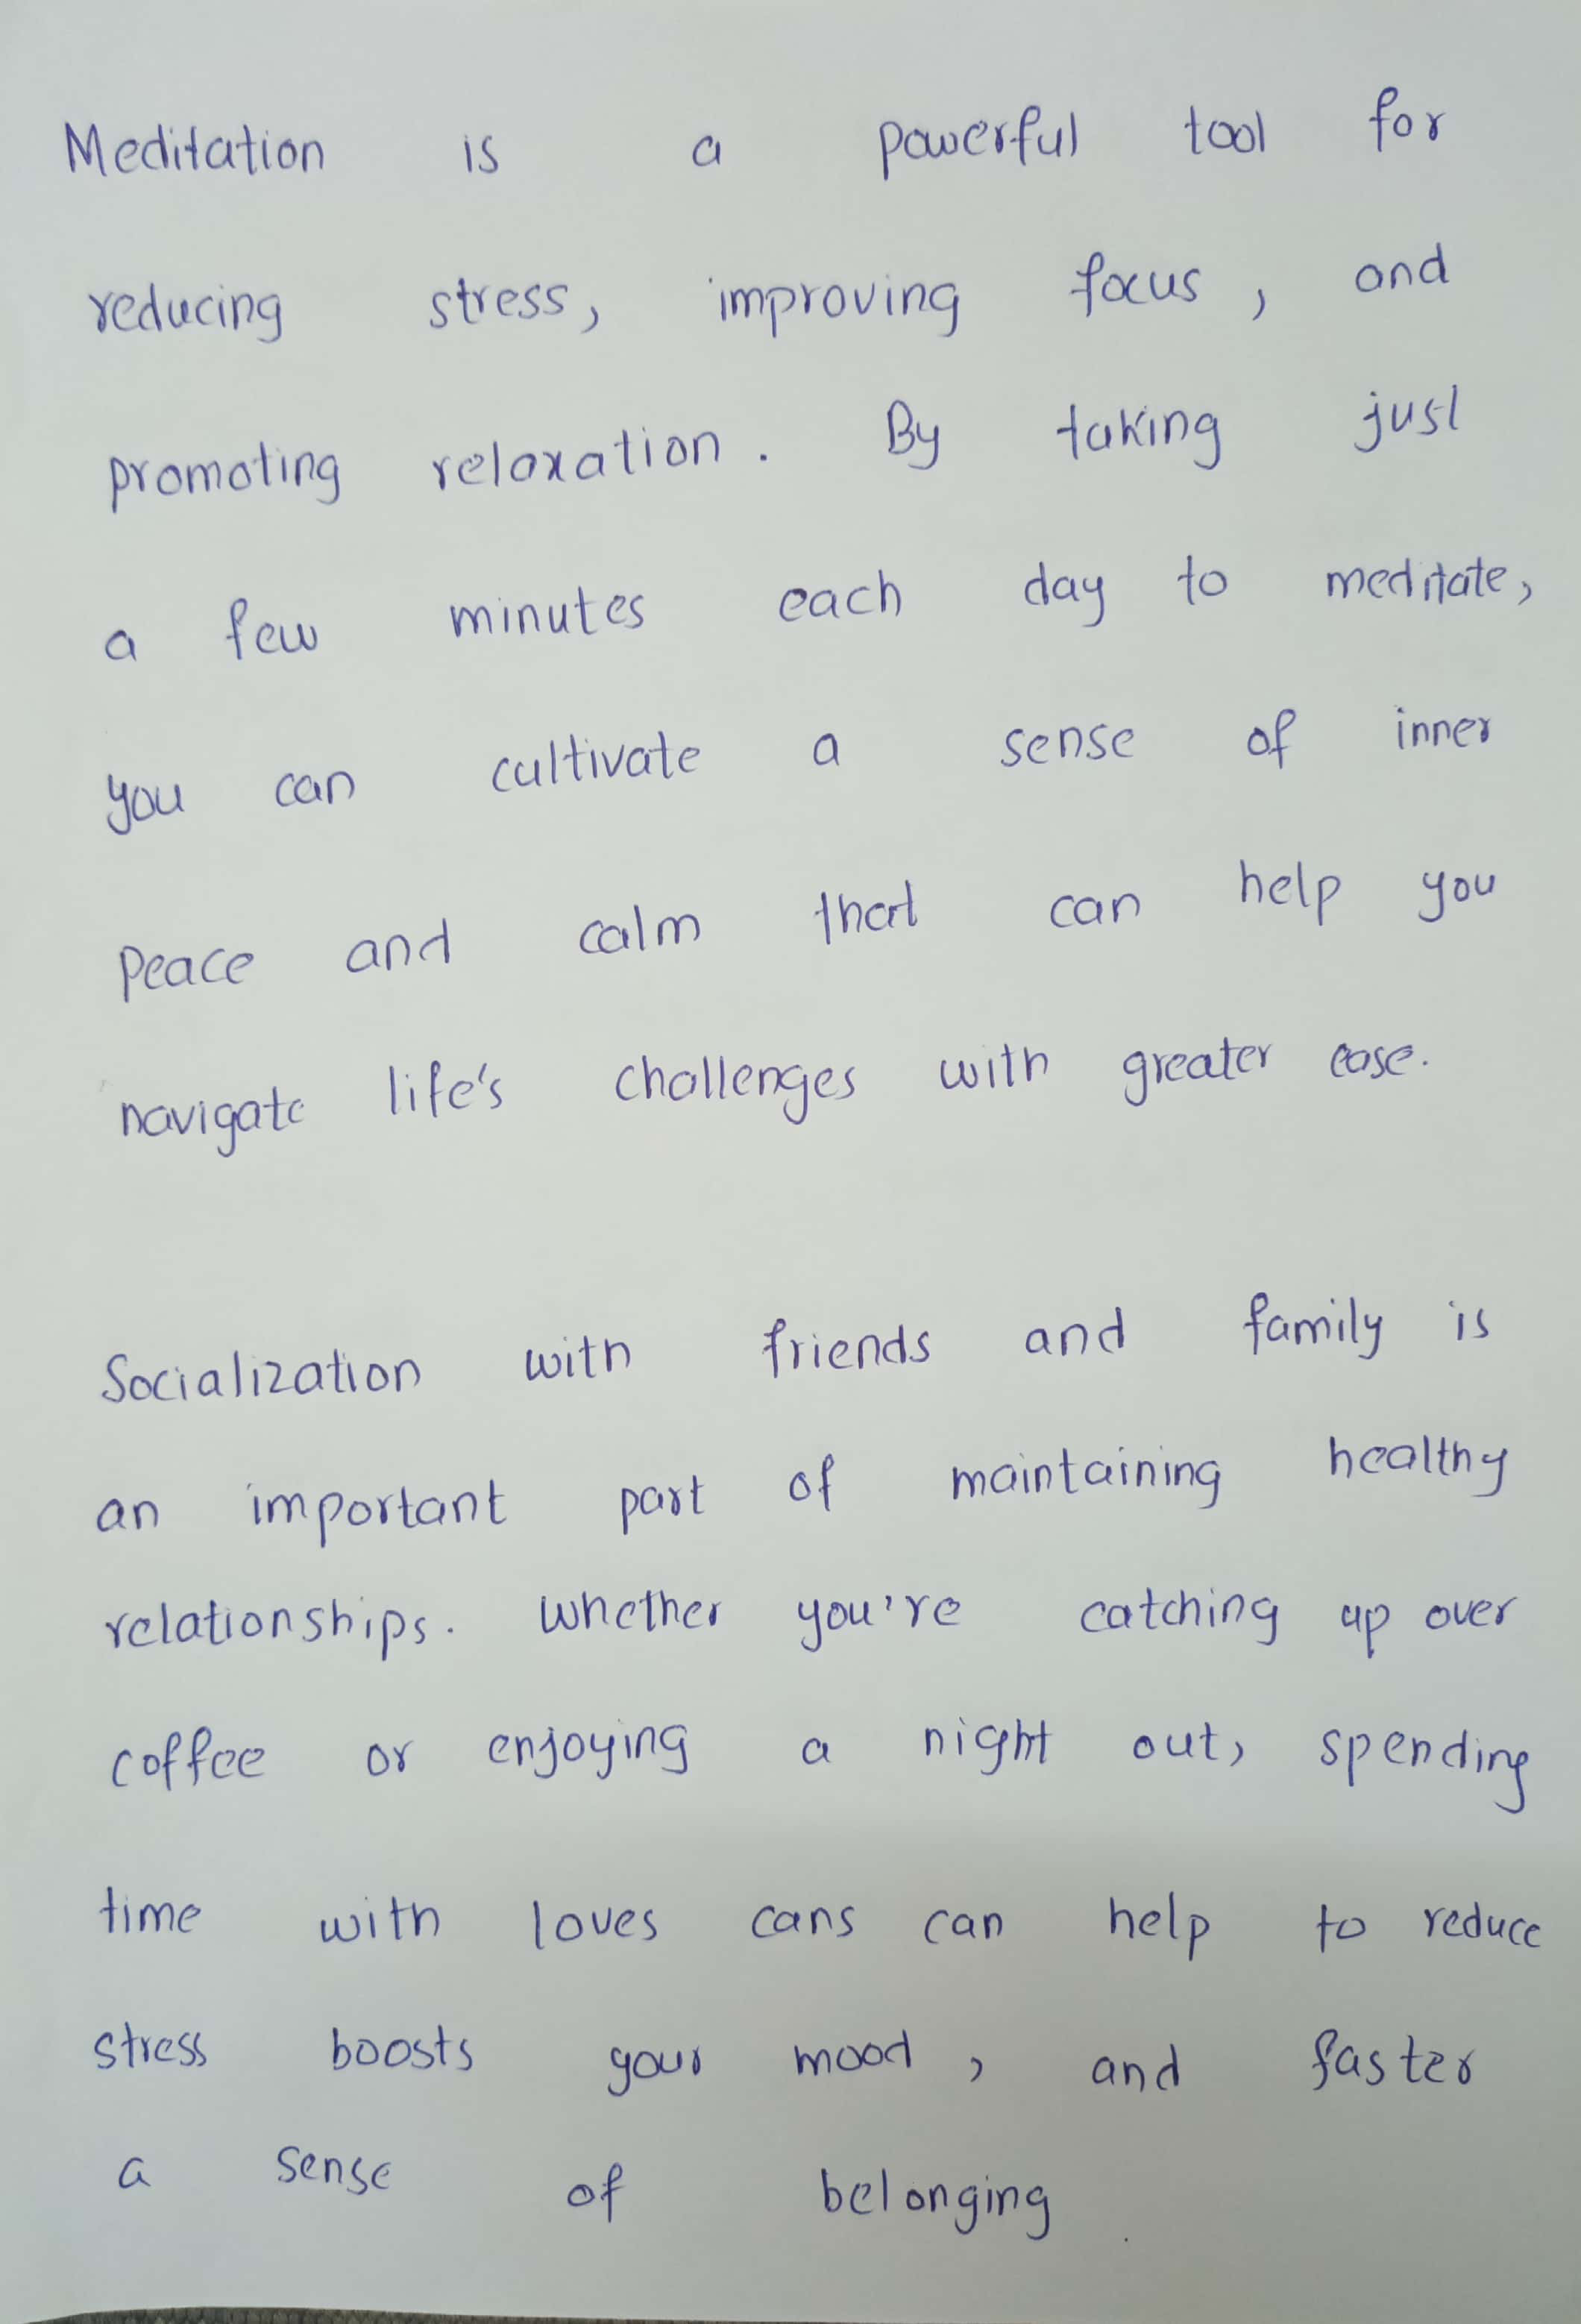 Meditation is a powerful tool for
reducing stress, improving focus, and
promoting relaxation. By taking just
a few minutes each day to meditate,
you can cultivate a sense of inner
Peace and calm that can help you
navigate life's challenges with greater ease.
Socialization with friends and family is
an important part of maintaining healthy
relationships. Whether you're catching up over
coffee or enjoying a night out, spending
time with loves cans can help to reduce
stress boosts your mood, and faster
a sense of belonging.